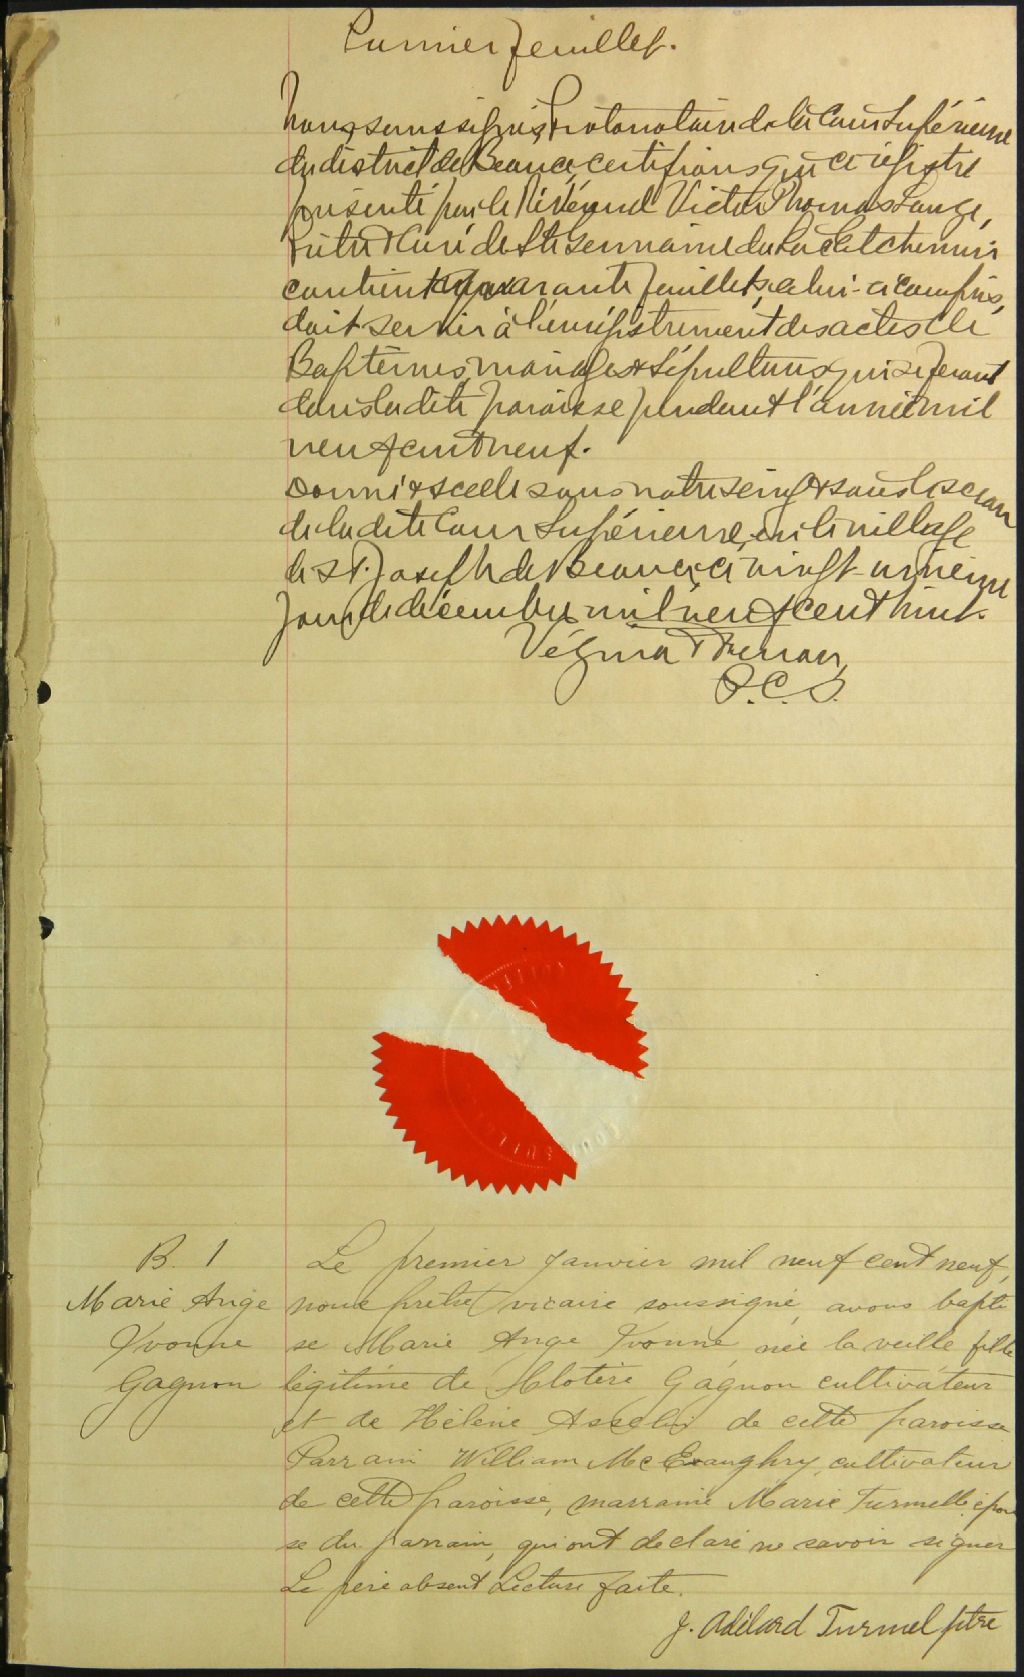 Premier feuillet.
Nous, soussignés, Protonotaire de la Cour Supérieure
du district de Beauce, certifions que ce registre
présenté par le Révérend Victor Thomas Lauzé,
Prêtre & Curé de Ste Germaine du Lac Etchemin
contient quarante feuillets, celui-ci compris,
doit servir à l'enregistrement des actes de
Baptêmes, mariages & sépultures qui se feront
dans la dite paroisse pendant l'année mil
neuf cent neuf.
Donné & scellé sous notre seing & sous le sceau
de la dite Cour Supérieure, en le village
de St. Joseph de Beauce, ce vingt-unième
jour de décembre mil neuf cent huit.
Vézina & Theriau,
P.C.S.
B. 1
Marie Ange
Yvonne
Gagnon
Le premier Janvier mil neuf cent neuf,
nous prêtre vicaire soussigné, avons bapti
se Marie Ange Yvonne, née la veille fille
légitime de Clotère Gagnon cultivateur
et de Hélène Asselin de cette paroisse
Parrain William Mc Evaughry, cultivateur
de cette paroisse, marraine Marie Turmelle, épou
se du parrain, qui ont déclaré ne savoir signer
Le père absent Lecture faite.
J. Adélard Turmel ptre